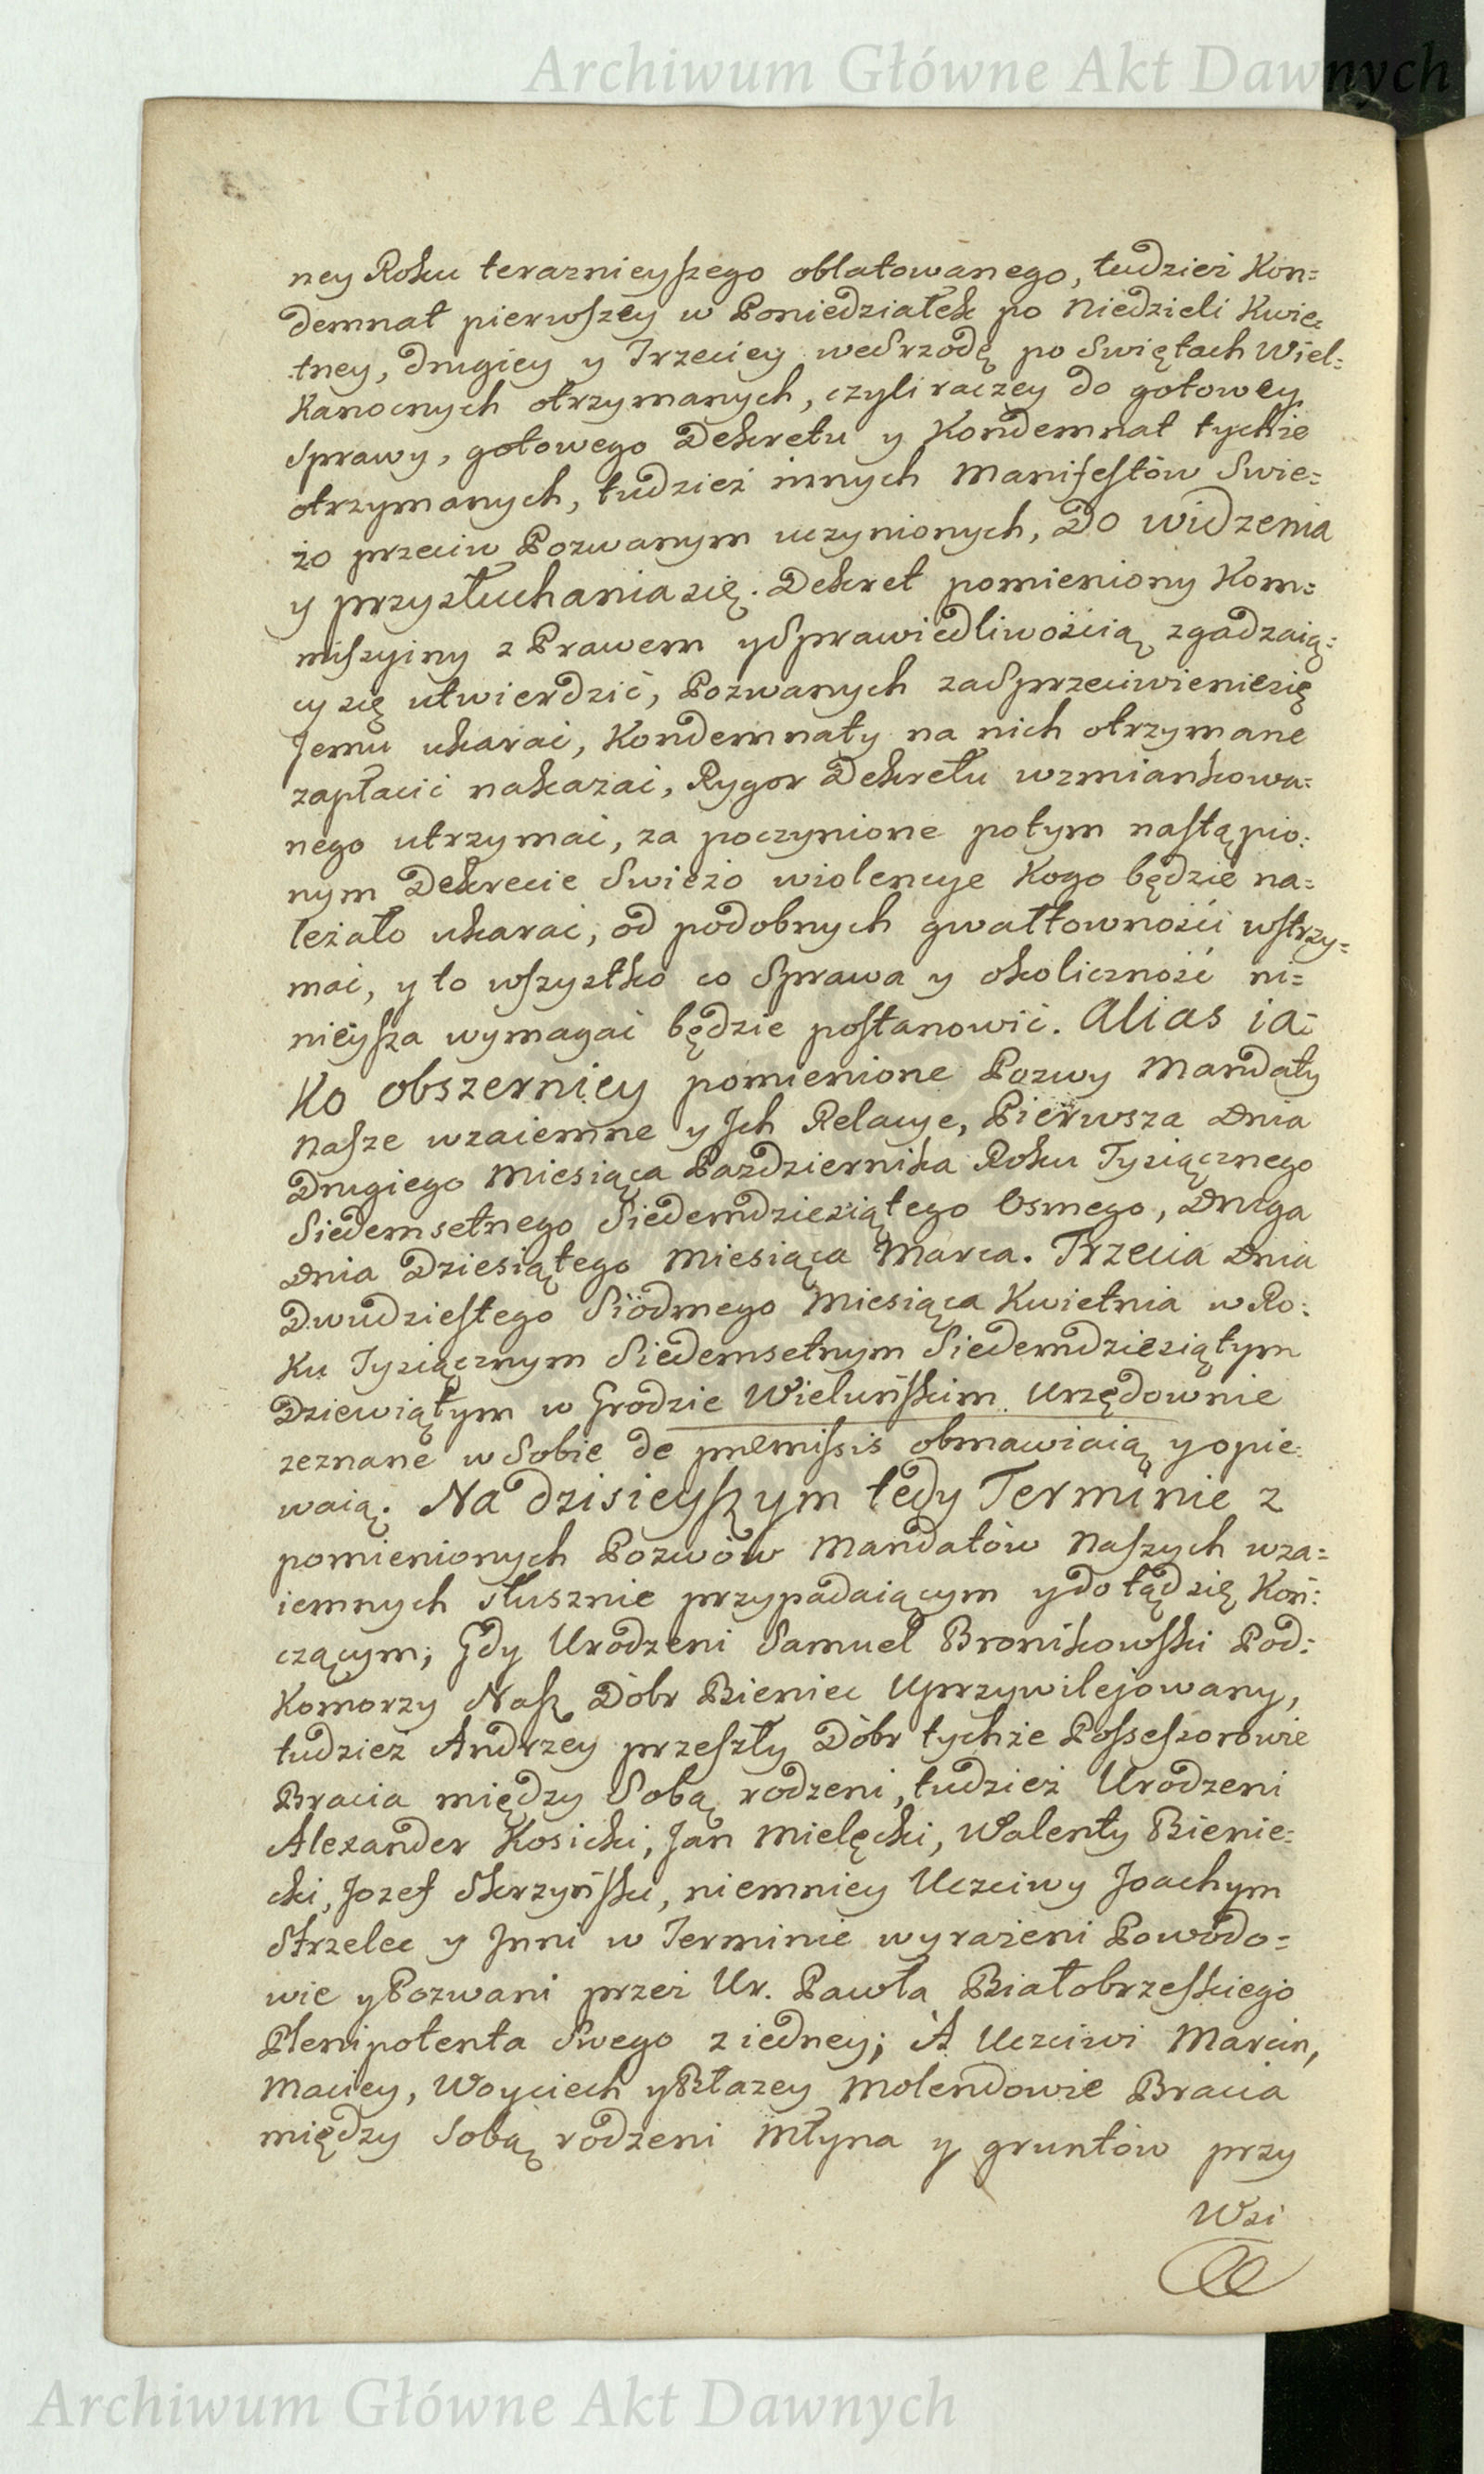 Archiwum Główne Akt Dawnych
ney Roku teraznieyszego oblatowanego, tudzież Kon=
demnat pierwszey w Poniedziałek po Niedzieli Kwie=
tney, drugiey y Trzeciey we Srzodę po Swiętach Wiel=
Kanocnych otrzymanych, czyli raczey do gotowey
Sprawy, gotowego Dekretu y Kondemnat tychże
otrzymanych, tudzież innych Manifestów Swie=
żo przeciw Pozwanym uczynionych, Do widzenia
y przysłuchania się. Dekret pomieniony Kom=
miszyiny z Prawem y Sprawiedliwością zgadzaią=
cy się utwierdzić, Pozwanych za Sprzeciwienie się
Jemu ukarać, Kondemnaty na nich otrzymane
zapłacić nakazać, Rygor Dekretu wzmiankowa=
nego utrzymać, za poczynione potym nastąpio=
nym Dekrecie Swieżo wiolencye Kogo będzie na=
leżało ukarać, od podobnych gwałtowności wstrzy=
mać, y to wszystko co Sprawa y okoliczność ni=
nieysza wymagać będzie postanowić. Alias ia=
Ko obszerniey pomienione Pozwy Mandaty
Nasze wzaiemne y Jch Relacye, Pierwsza Dnia
Drugiego Miesiąca Pazdziernika Roku Tysiącznego
Siedemsetnego Siedemdziesiątego Osmego, Druga
Dnia Dziesiątego Miesiąca Marca. Trzecia Dnia
Dwudziestego Siódmego Miesiąca Kwietnia w Ro=
Ku Tysiącznym Siedemsetnym Siedemdziesiątym
Dziewiątym w Grodzie Wieluńskim Urzędownie
zeznane w Sobie de præmissis obmawiaią y opie=
waią. Na dzisieyszym tedy Terminie z
pomienionych Pozwów Mandatów Naszych wza=
iemnych słusznie przypadaiącym y do tąd się Koń=
czącym; Gdy Urodzeni Samuel Bronikowski Pod=
Komorzy Nasz Dóbr Bieniec Uprzywilejowany,
tudzież Andrzey przeszły Dóbr tychże Possessorowie
Bracia między Sobą rodzeni, tudzież Urodzeni
Alexander Kosicki, Jan Mielęcki, Walenty Bienie=
cki, Jozef Skrzyński, niemniey Uczciwy Joachym
Strzelec y Jnni w Terminie wyrażeni Powodo=
wie y Pozwani przez Ur. Pawła Białobrzeskiego
Plenipotenta Swego z iedney; A Uczciwi Marcin,
Maciey, Woyciech y Błazey Molendowie Bracia
między Sobą rodzeni Młyna y gruntów przy
Wsi
Archiwum Główne Akt Dawnych